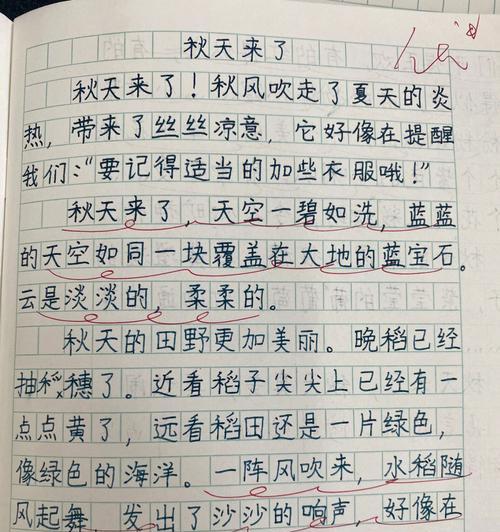 秋天来了
秋天来了！秋风吹走了夏天的炎
热，带来了丝丝凉意，它好像在提醒
我们：“要记得适当的加些衣服哦！”
秋天来了，天空一碧如洗，蓝蓝
的天空如同一块覆盖在大地的蓝宝石。
云是淡淡的，柔柔的。
秋天的田野更加美丽。晚稻已经
抽稻穗了。近看稻子尖尖上已经有一
点点黄了，远看稻田还是一片绿色，
像绿色的海洋。一阵风吹来，水稻随
风起舞，发出了沙沙的响声，好像在